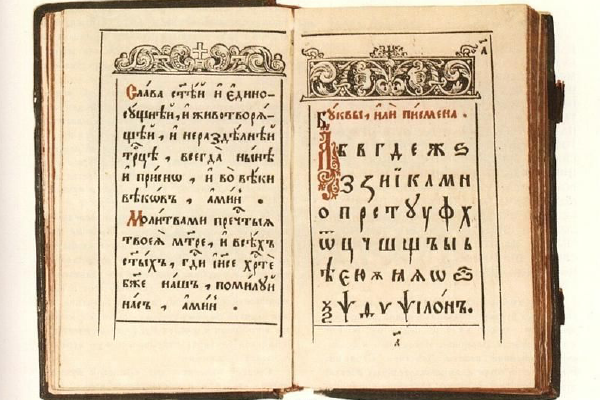 Слава ст҃ѣй и҆ є҆дино-
сущнѣй, и҆ животворѧ-
щей, и҆ нераздѣлнѣй
трⷪ҇цѣ, всегда ны́нѣ
и҆ при́снѡ, и҆ во вѣки
вѣкѡвъ, а҆ми́нь.
Моли́твами пречⷭ҇тыѧ
твоеѧ̀ мт҃ре, и҆ всѣ́хъ
ст҃ы́хъ, гдⷭ҇и і҆и҃се хрⷭ҇те
бж҃е нашъ, поми́луй
насъ, а҆ми́нь.
а҃
Бꙋ́квы, и҆лѝ пи́смена.
А Б В Г Д Е Ж Ѕ
З Ꙁ И Ї К Л М Н
О П Р С Т У Ꙋ Ф Х
Ѿ Ц Ч Ш Щ Ъ Ы Ь
Ѣ Є Ю Ѫ Ѧ Я Ѡ
Ѯ Ѱ Ѳ Ѵ Ѱі́ло́нъ.